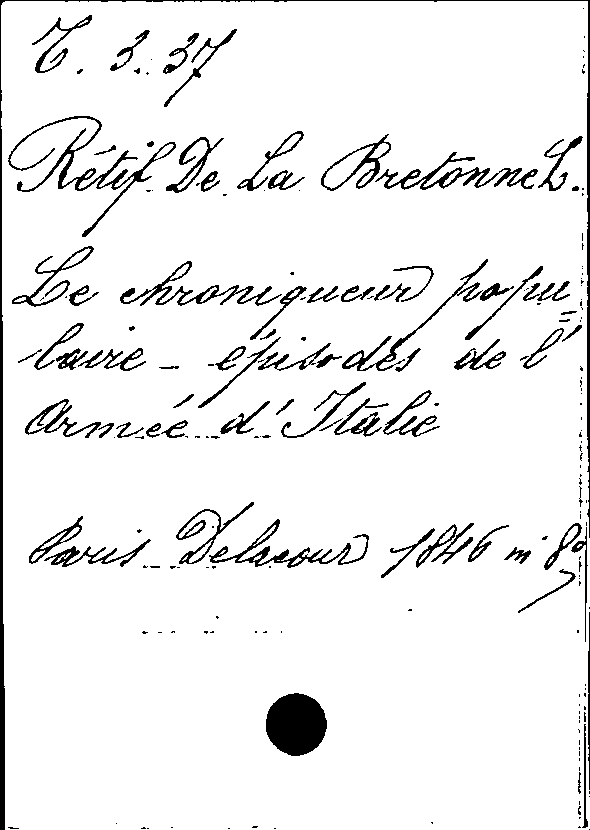 T. 3. 37
Rétif De La Bretonne L.
Le chroniqueur popu=
laire - épisodes de l'
Armée d'Italie
Paris Delacour 1846 in 8°